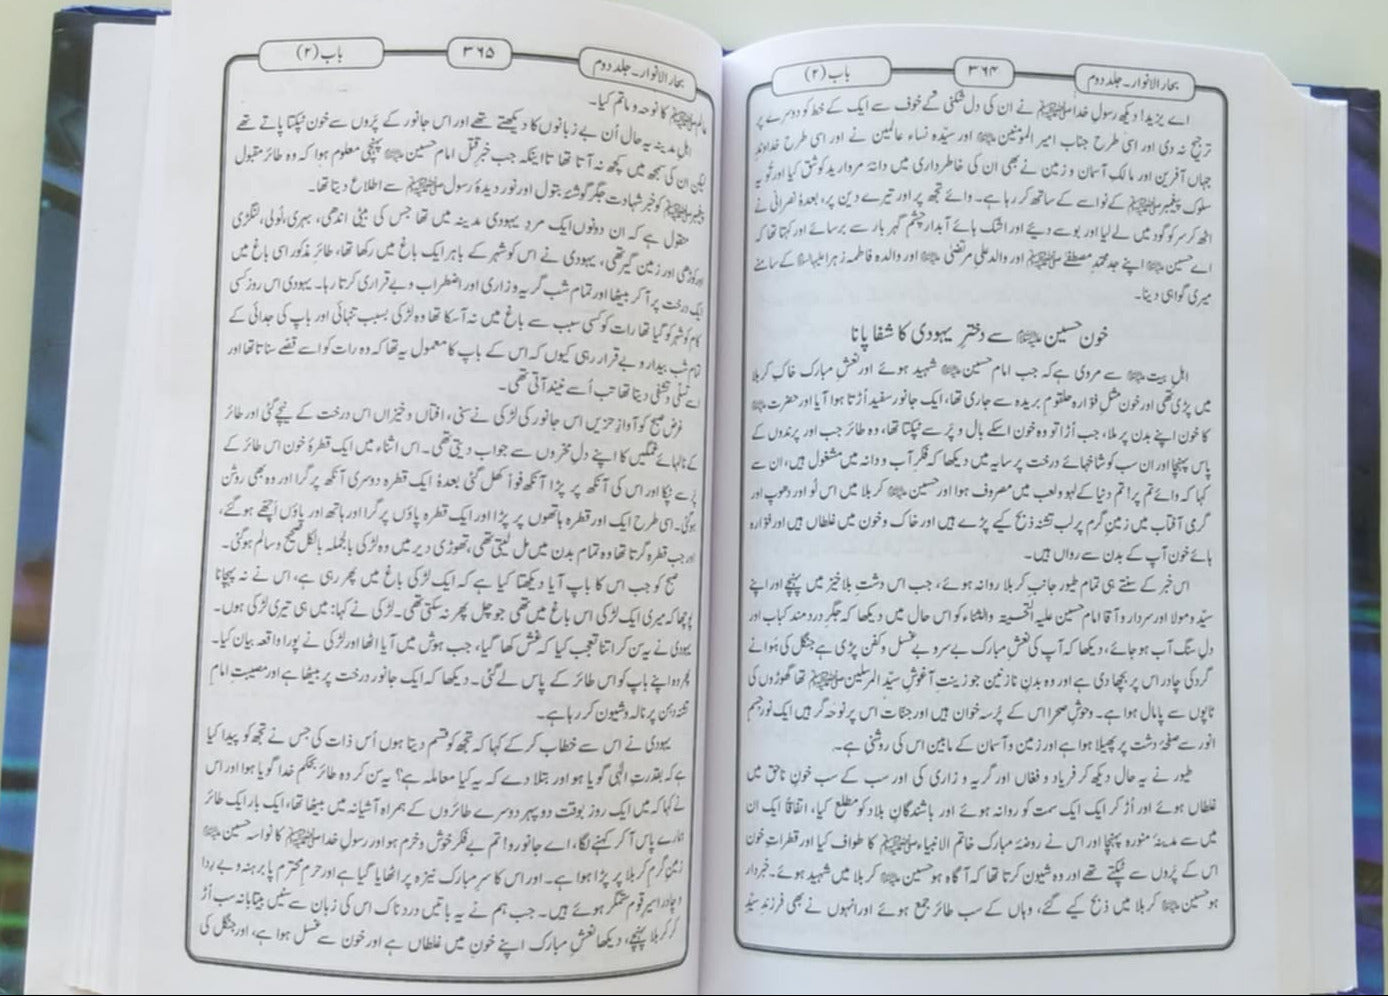 بحار الانوار۔ جلد دوم
۳۶۴
باب (۲)
اے یزید! دیکھ رسول خداﷺ نے ان کی دل شکنی کے خوف سے ایک کے خط کو دوسرے پر
ترجیح نہ دی اور اسی طرح جناب امیر المؤمنین اور سیّدہ نساء عالمین نے اور اسی طرح خداوندِ
جہاں آفرین اور مالکِ آسمان و زمین نے بھی ان کی خاطرداری میں دانۂ مروارید کو شق کیا اور تُو یہ
سلوک پیغمبرﷺ کے نواسے کے ساتھ کر رہا ہے۔ وائے تجھ پر اور تیرے دین پر، بعدۂ نصرانی نے
اٹھ کر سر کو گود میں لے لیا اور بوسے دیئے اور اشک ہائے آبدار چشمِ گہر بار سے برسائے اور کہتا تھا کہ
اے حسین اپنے جد محمد مصطفےٰﷺ اور والد علی مرتضیٰ اور والدہ فاطمہ زہرا کے سامنے
میری گواہی دینا۔
خون حسین سے دخترِ یہودی کا شفا پانا
اہلِ بیت سے مروی ہے کہ جب امام حسین شہید ہوئے اور نعشِ مبارک خاکِ کربلا
میں پڑی تھی اور خون مثلِ فوّارہ حلقوم بریدہ سے جاری تھا، ایک جانور سفید اُڑتا ہوا آیا اور حضرت
کا خون اپنے بدن پر ملا، جب اُڑا تو وہ خون اسکے بال و پَر سے ٹپکتا تھا، وہ طائر جب اور پرندوں کے
پاس پہنچا اور ان سب کو شاخہائے درخت پر سایہ میں دیکھا کہ فکرِ آب و دانہ میں مشغول ہیں، ان سے
کہا کہ وائے تم پر! تم دنیا کے لہو و لعب میں مصروف ہو اور حسین کربلا میں اس لُو اور دھوپ اور
گرمی آفتاب میں زمینِ گرم پر لب تشنہ ذبح کیے پڑے ہیں اور خاک و خون میں غلطاں ہیں اور فوّارہ
ہائے خون آپ کے بدن سے رواں ہیں۔
اس خبر کے سنتے ہی تمام طیور جانبِ کربلا روانہ ہوئے، جب اس دشتِ بلا خیز میں پہنچے اور اپنے
سیّد و مولا اور سردار و آقا امام حسین علیہ التحیّۃ والثناء کو اس حال میں دیکھا کہ جگرِ دردمند کباب اور
دلِ سنگ آب ہو جائے، دیکھا کہ آپ کی نعشِ مبارک بے سر و بے غسل و کفن پڑی ہے جنگل کی ہوا نے
گرد کی چادر اس پر بچھا دی ہے اور وہ بدنِ نازنین جو زینتِ آغوشِ سیّد المرسلینﷺ تھا گھوڑوں کی
ٹاپوں سے پامال ہوا ہے۔ وحوشِ صحرا اس کے پُرسہ خوان ہیں اور جنّات اس پر نوحہ گر ہیں ایک نور جسم
انور سے صفحۂ دشت پر پھیلا ہوا ہے اور زمین و آسمان کے مابین اس کی روشنی ہے۔
طیور نے یہ حال دیکھ کر فریاد و فغاں اور گریہ و زاری کی اور سب کے سب خونِ ناحق میں
غلطاں ہوئے اور اڑ کر ایک ایک سمت کو روانہ ہوئے اور باشندگانِ بلاد کو مطلع کیا، اتفاقاً ایک ان
میں سے مدینۂ منورہ پہنچا اور اس نے روضۂ مبارک خاتم الانبیاءﷺ کا طواف کیا اور قطراتِ خون
اس کے پروں سے ٹپکتے تھے اور وہ شیون کرتا تھا کہ آگاہ ہو حسین کربلا میں شہید ہوئے۔ خبردار
ہو حسین کربلا میں ذبح کیے گئے، وہاں کے سب طائر جمع ہوئے اور انہوں نے بھی فرزندِ سیّدِ
بحار الانوار۔ جلد دوم
۳۶۵
باب (۲)
عالمﷺ کا نوحہ و ماتم کیا۔
اہلِ مدینہ یہ حال اُن بے زبانوں کا دیکھتے تھے اور اس جانور کے پَروں سے خون ٹپکتا پاتے تھے
لیکن ان کی سمجھ میں کچھ نہ آتا تھا تا اینکہ جب خبرِ قتل امام حسین پہنچی معلوم ہوا کہ وہ طائر مقبول
پیغمبرﷺ کو خبرِ شہادت جگر گوشۂ بتول اور نورِ دیدۂ رسولﷺ سے اطلاع دیتا تھا۔
منقول ہے کہ ان دونوں ایک مرد یہودی مدینہ میں تھا جس کی بیٹی اندھی، بہری، لُولی، لنگڑی
اور کوڑھی اور زمین گیر تھی، یہودی نے اس کو شہر کے باہر ایک باغ میں رکھا تھا، طائر مذکور اسی باغ میں
ایک درخت پر آ کر بیٹھا اور تمام شب گریہ و زاری اور اضطراب و بے قراری کرتا رہا۔ یہودی اس روز کسی
کام کو شہر گیا تھا رات کو کسی سبب سے باغ میں نہ آسکا تھا وہ لڑکی بسبب تنہائی اور باپ کی جدائی کے
تمام شب بیدار و بے قرار رہی کیوں کہ اس کے باپ کا معمول یہ تھا کہ وہ رات کو اسے قصّے سناتا تھا اور
اسے تسلّی و تشفّی دیتا تھا تب اُسے نیند آتی تھی۔
غرض صبح کو آوازِ حزیں اس جانور کی لڑکی نے سنی، افتاں و خیزاں اس درخت کے نیچے گئی اور طائر
کے نالہائے غمگیں کا اپنے دلِ محزوں سے جواب دیتی تھی۔ اس اثناء میں ایک قطرۂ خون اس طائر کے
پر سے ٹپکا اور اس کی آنکھ پر پڑا آنکھ فوراً کھل گئی بعدۂ ایک قطرہ دوسری آنکھ پر گرا اور وہ بھی روشن
ہوگئی۔ اسی طرح ایک اور قطرہ ہاتھوں پر پڑا اور ایک قطرہ پاؤں پر گرا اور ہاتھ اور پاؤں اچھے ہو گئے،
اور جب قطرہ گرتا تھا وہ تمام بدن میں مل لیتی تھی، تھوڑی دیر میں وہ لڑکی بالجملہ بالکل صحیح و سالم ہوگئی۔
صبح کو جب اس کا باپ آیا دیکھتا کیا ہے کہ ایک لڑکی باغ میں پھر رہی ہے، اس نے نہ پہچانا
پوچھا کہ میری ایک لڑکی اس باغ میں تھی جو چل پھر نہ سکتی تھی۔ لڑکی نے کہا: میں ہی تیری لڑکی ہوں۔
یہودی نے یہ سن کر اتنا تعجب کیا کہ غش کھا گیا، جب ہوش میں آیا اٹھا اور لڑکی نے پورا واقعہ بیان کیا۔
پھر وہ اپنے باپ کو اس طائر کے پاس لے گئی۔ دیکھا کہ ایک جانور درخت پر بیٹھا ہے اور مصیبتِ امام
تشنہ دہن پر نالہ و شیون کر رہا ہے۔
یہودی نے اس سے خطاب کر کے کہا کہ تجھ کو قسم دیتا ہوں اُس ذات کی جس نے تجھ کو پیدا کیا
ہے کہ بقدرتِ الٰہی گویا ہو اور بتلا دے کہ یہ کیا معاملہ ہے؟ یہ سن کر وہ طائر بحکمِ خدا گویا ہوا اور اس
نے کہا کہ میں ایک روز بوقت دوپہر دوسرے طائروں کے ہمراہ آشیانہ میں بیٹھا تھا، ایک بار ایک طائر
ہمارے پاس آ کر کہنے لگا، اے جانورو! تم بے فکر خوش و خرم ہو اور رسولِ خداﷺ کا نواسہ حسین
زمینِ گرمِ کربلا پر پڑا ہوا ہے۔ اور اس کا سرِ مبارک نیزہ پر اٹھایا گیا ہے اور حرمِ محترم پا برہنہ و بے ردا
و چادر اسیرِ قومِ ستمگر ہوئے ہیں۔ جب ہم نے یہ باتیں دردناک اس کی زبان سے سنیں بیتابانہ سب اُڑ
کر کربلا پہنچے، دیکھا نعشِ مبارک اپنے خون میں غلطاں ہے اور خون سے غسل ہوا ہے، اور جنگل کی